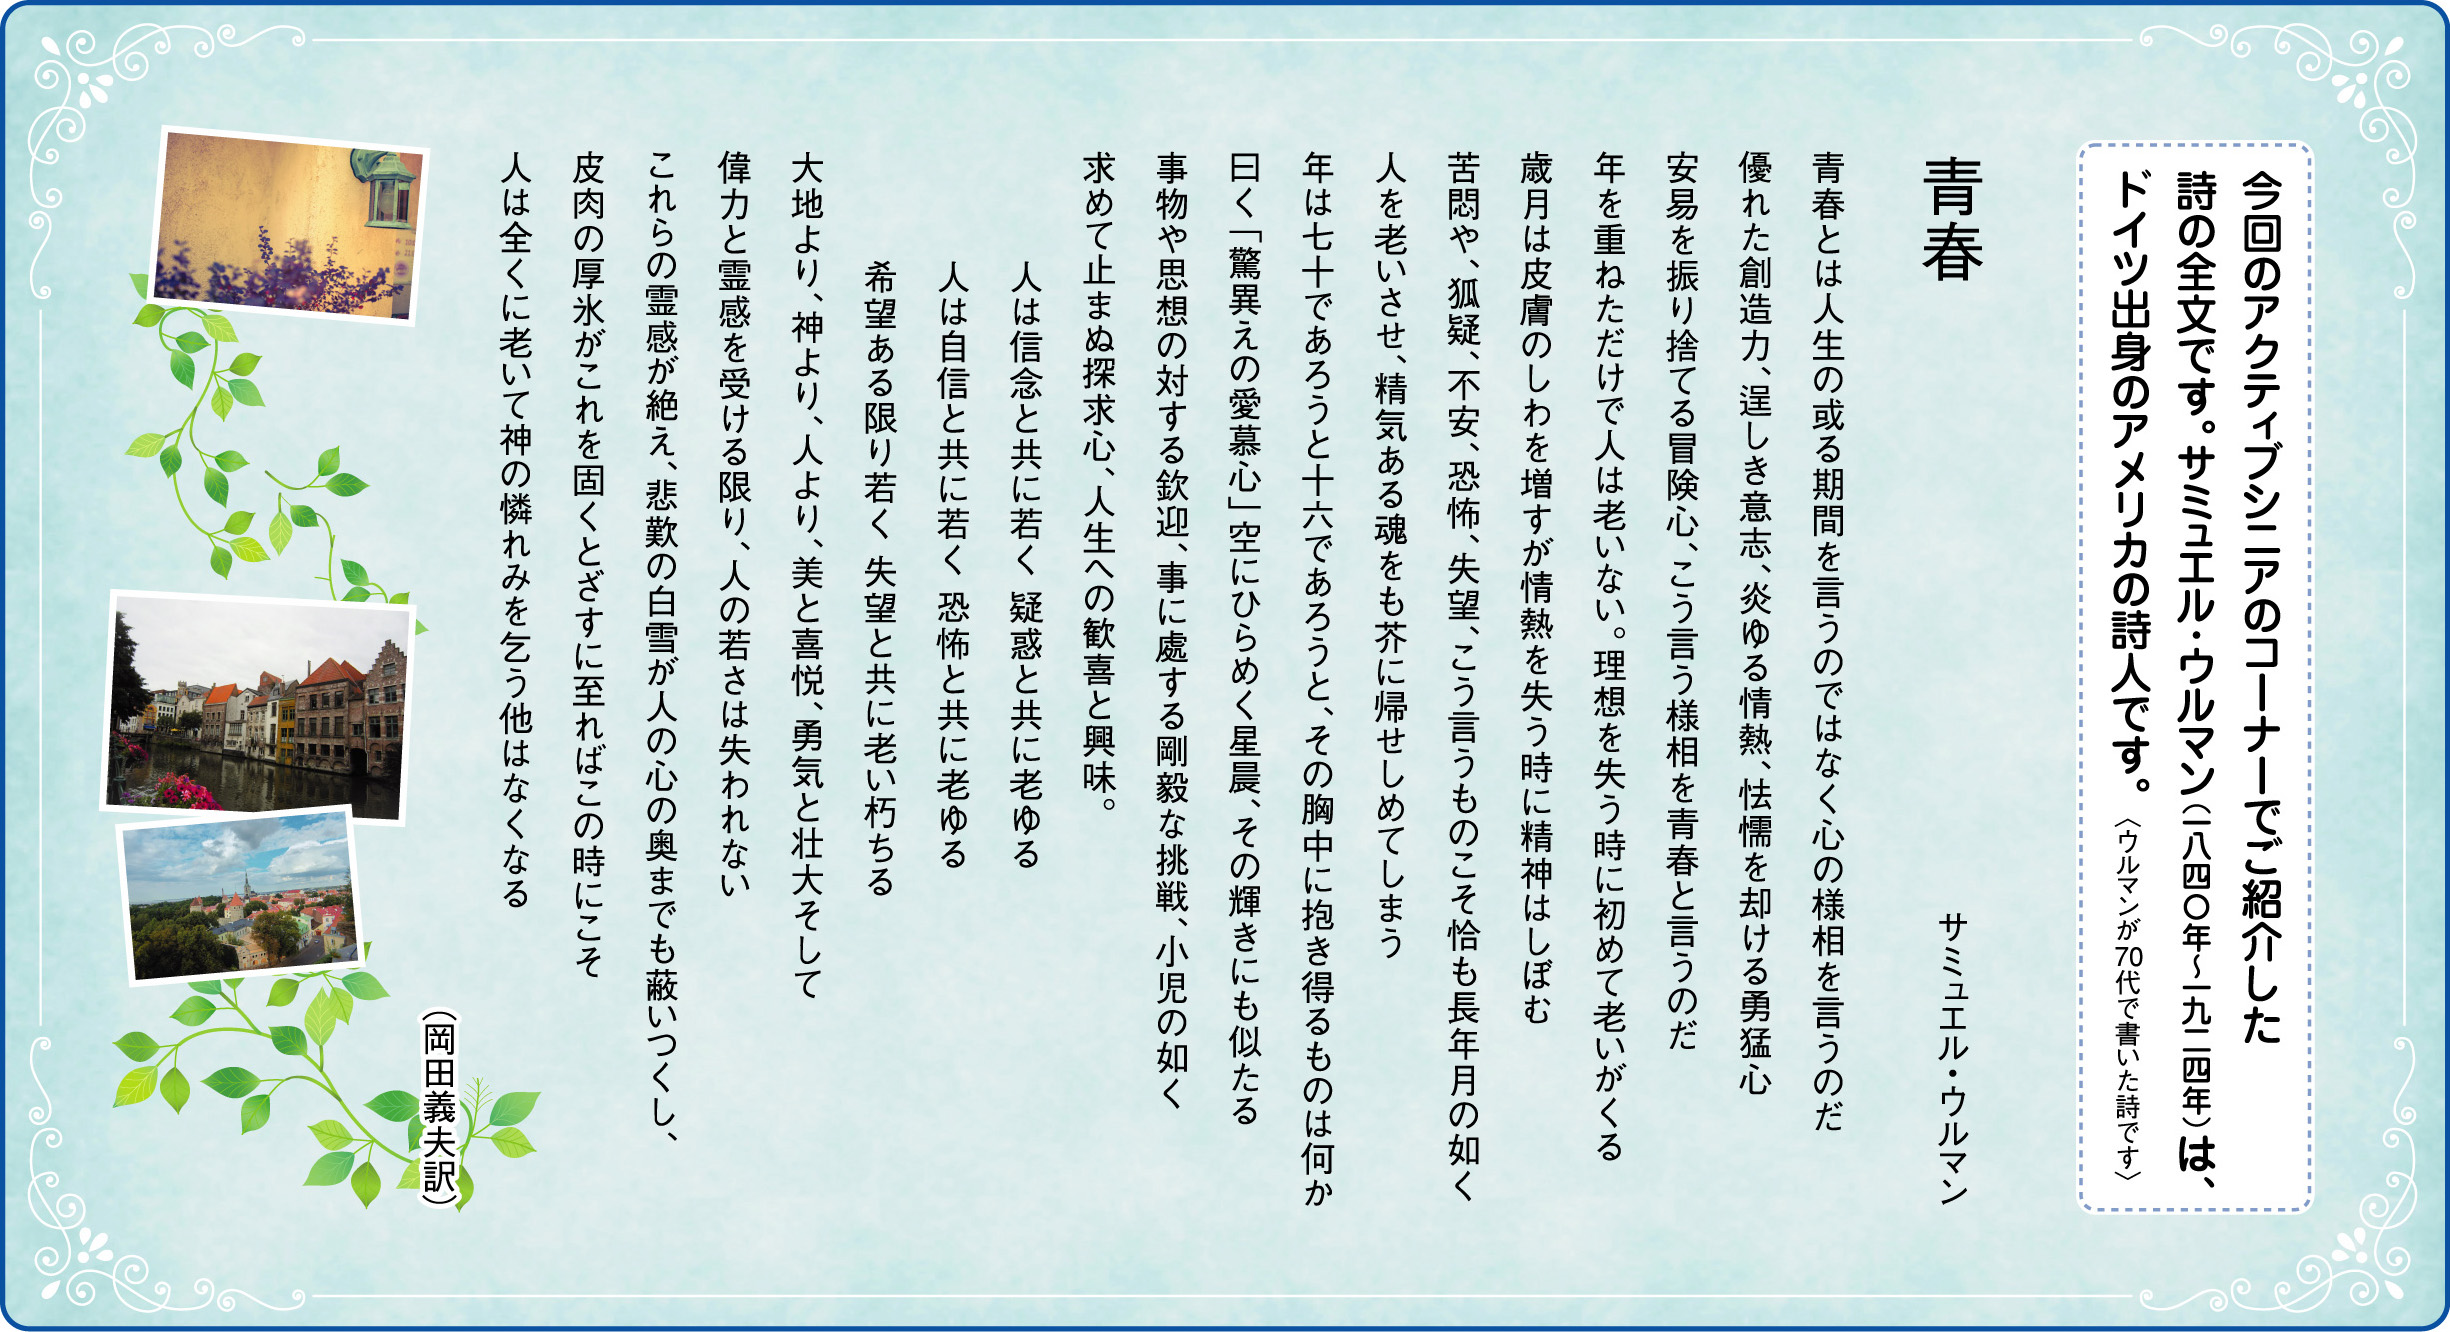 今回のアクティブシニアのコーナーでご紹介した
詩の全文です。サミュエル・ウルマン（一八四〇年〜一九二四年）は、
ドイツ出身のアメリカの詩人です。〈ウルマンが70代で書いた詩です〉
青春
サミュエル・ウルマン
青春とは人生の或る期間を言うのではなく心の様相を言うのだ
優れた創造力、逞しき意志、炎ゆる情熱、怯懦を却ける勇猛心
安易を振り捨てる冒険心、こう言う様相を青春と言うのだ
年を重ねただけで人は老いない。理想を失う時に初めて老いがくる
歳月は皮膚のしわを増すが情熱を失う時に精神はしぼむ
苦悶や、狐疑、不安、恐怖、失望、こう言うものこそ恰も長年月の如く
人を老いさせ、精気ある魂をも芥に帰せしめてしまう
年は七十であろうと十六であろうと、その胸中に抱き得るものは何か
曰く「驚異えの愛慕心」空にひらめく星晨、その輝きにも似たる
事物や思想の対する欽迎、事に處する剛毅な挑戦、小児の如く
求めて止まぬ探求心、人生への歓喜と興味。
人は信念と共に若く 疑惑と共に老ゆる
人は自信と共に若く 恐怖と共に老ゆる
希望ある限り若く 失望と共に老い朽ちる
大地より、神より、人より、美と喜悦、勇気と壮大そして
偉力と霊感を受ける限り、人の若さは失われない
これらの霊感が絶え、悲歎の白雪が人の心の奥までも蔽いつくし、
皮肉の厚氷がこれを固くとざすに至ればこの時にこそ
人は全くに老いて神の憐れみを乞う他はなくなる
（岡田義夫訳）